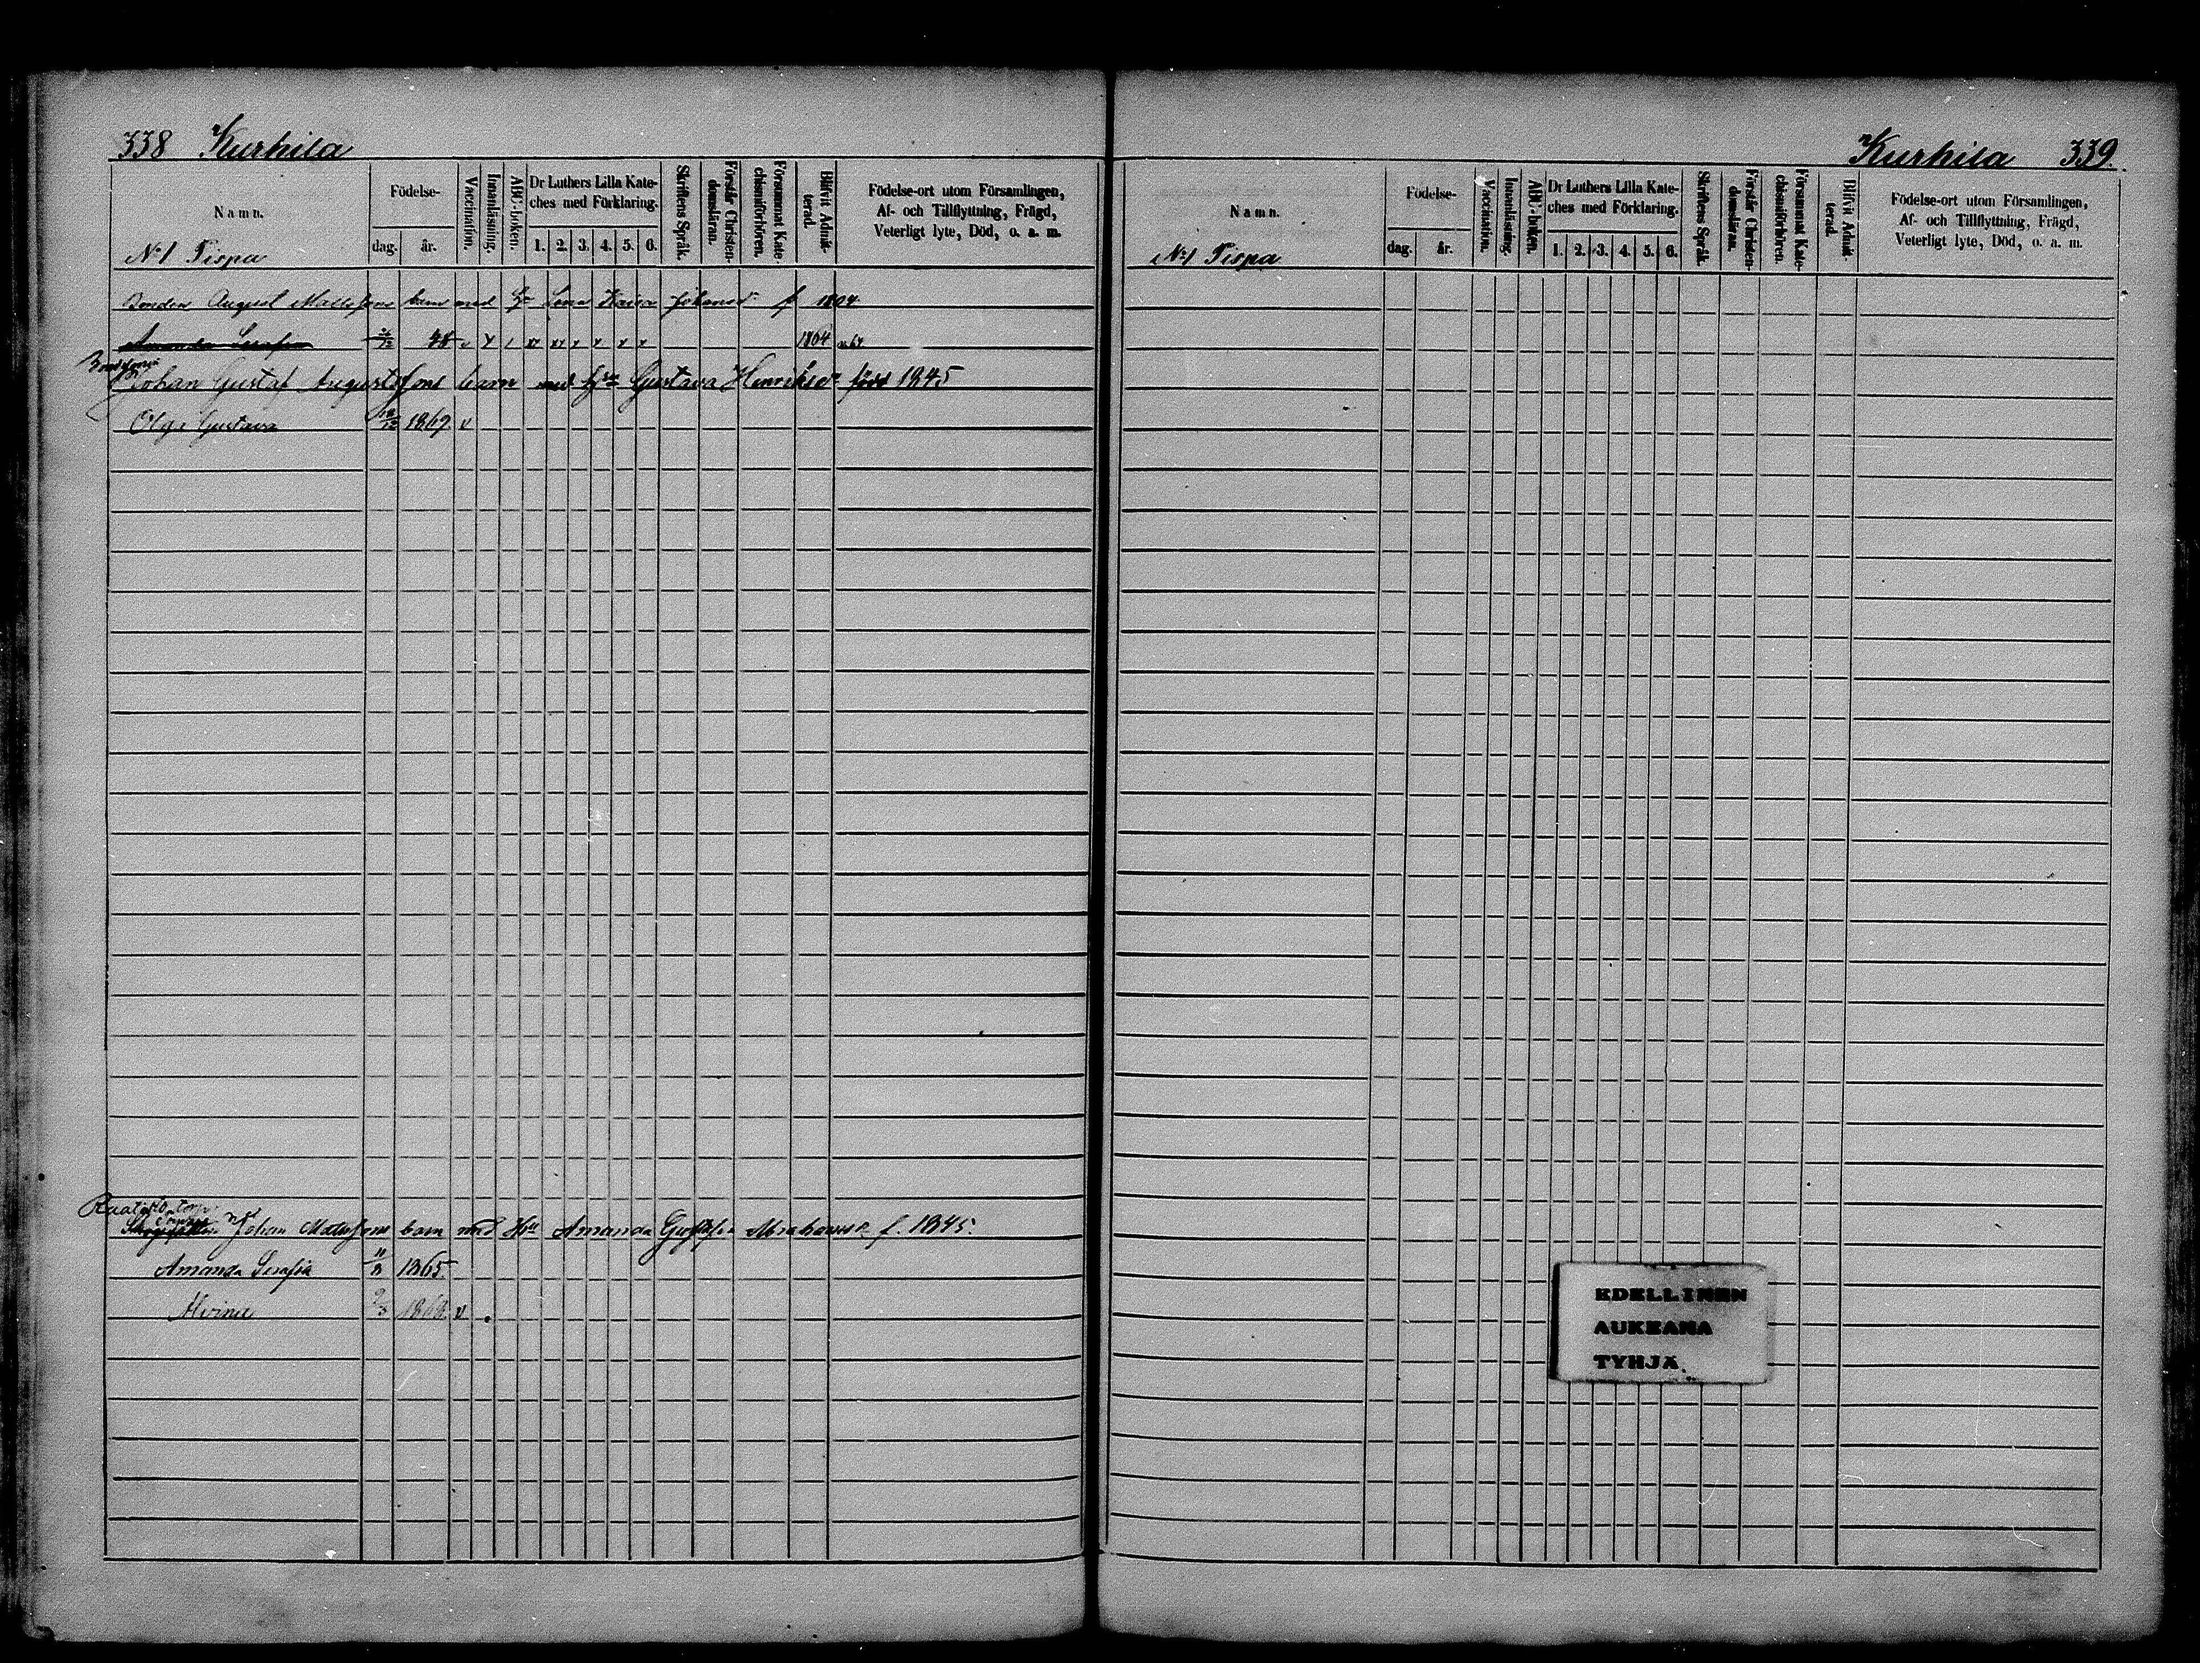 338 Kurhila
Namn.
Födelse-
dag.
år.
Vaccination.
Innanläsning.
ABC-boken.
Dr Luthers Lilla Kate-
ches med Förklaring.
1. 2. 3. 4. 5. 6.
Skriftens Språk.
Förstår Christen-
domsläran.
Försummat Kate-
chismiförhören.
Blifvit Admit-
terad.
Födelse-ort utom Församlingen,
Af- och Tillflyttning, Frägd,
Veterligt lyte, Död, o. a. m.
No 1 Tispa
Bonden August Mattssons barn med H:u Lena Kaisa Johansd:r f 1804
Amanda Serafia 48 1864
Johan Gustaf Augustssons barn med H:u Gustava Henriksd:r född 1845
Olga Gustava 1869 v
Johan Mattssons barn med H:u Amanda Abrahamsd:r f. 1845.
Amanda Serafia 11/8 1865
Alvina 1868 v
Kurhila 339.
Namn.
Födelse-
dag.
år.
Vaccination.
Innanläsning.
ABC-boken.
Dr Luthers Lilla Kate-
ches med Förklaring.
1. 2. 3. 4. 5. 6.
Skriftens Språk.
Förstår Christen-
domsläran.
Försummat Kate-
chismiförhören.
Blifvit Admit-
terad.
Födelse-ort utom Församlingen,
Af- och Tillflyttning, Frägd,
Veterligt lyte, Död, o. a. m.
No 1 Tispa
EDELLINEN
AUKEAMA
TYHJÄ.